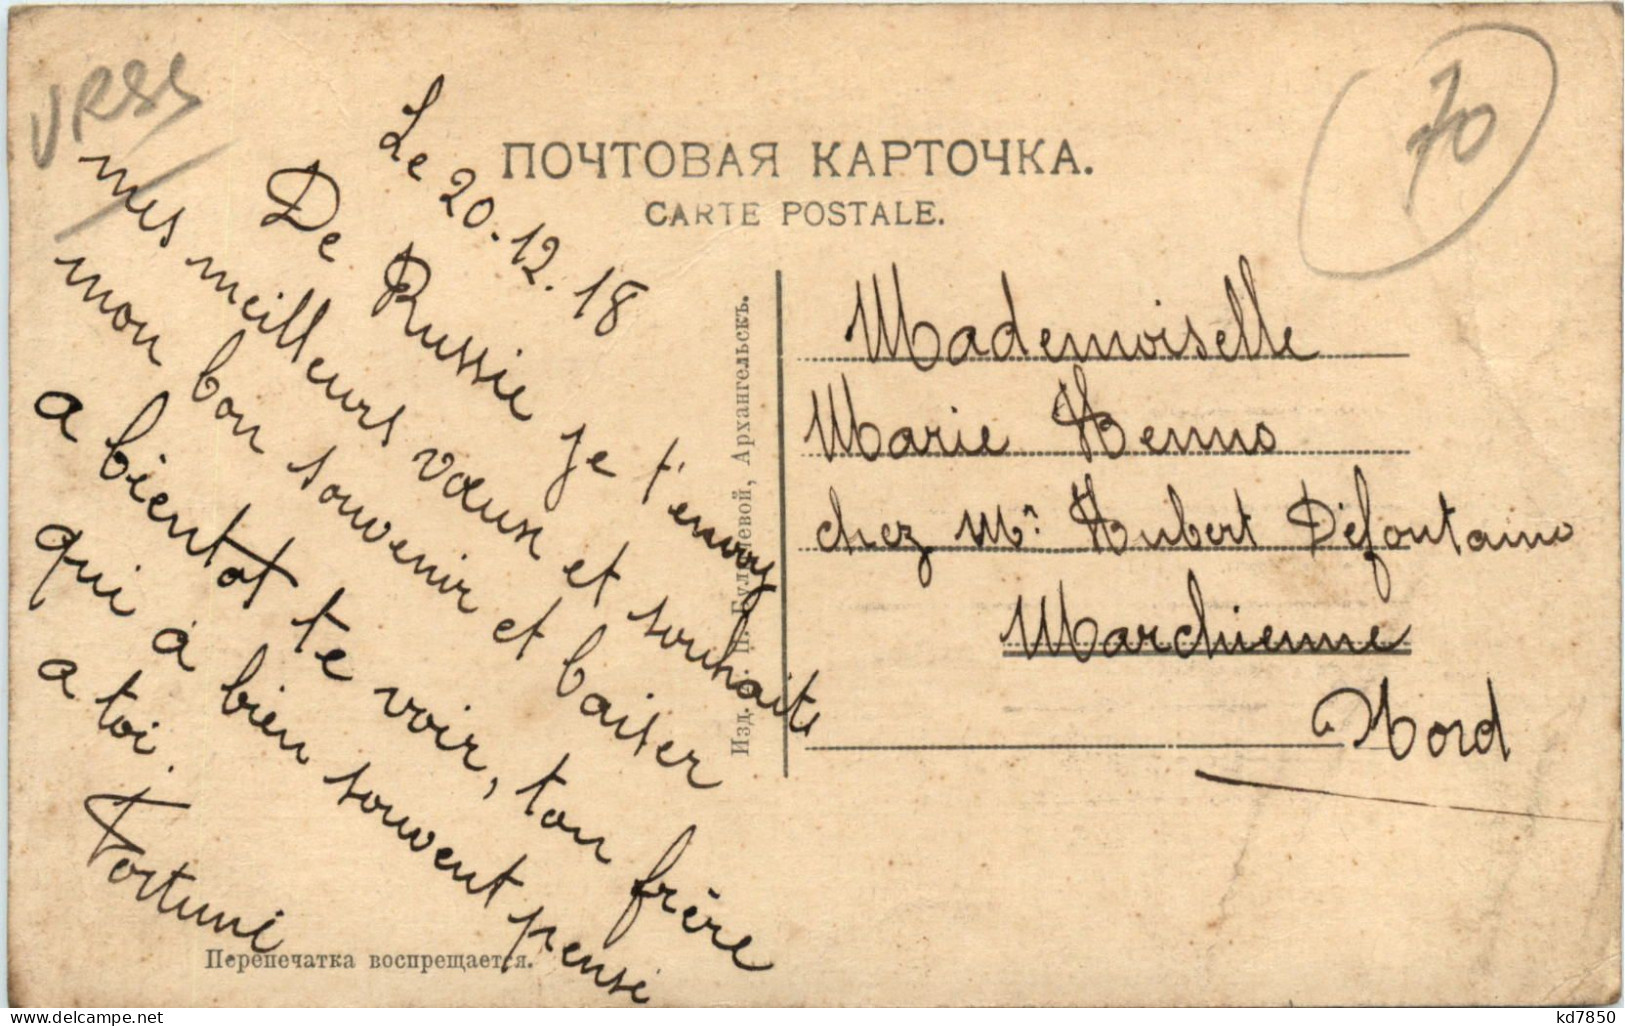 URSS
70
ПОЧТОВАЯ КАРТОЧКА.
CARTE POSTALE.
Le 20.12.18
De Russie je t'envoy
mes meilleurs vœux et souhaits
mon bon souvenir et baiser
a bientot te voir, ton frère
qui à bien souvent pensé
a toi.
Fortuné
Изд. Булычевой, Архангельскъ.
Перепечатка воспрещается.
Mademoiselle
Marie Henno
chez Mr. Hubert Défontaine
Marchienne
Nord
kd7850